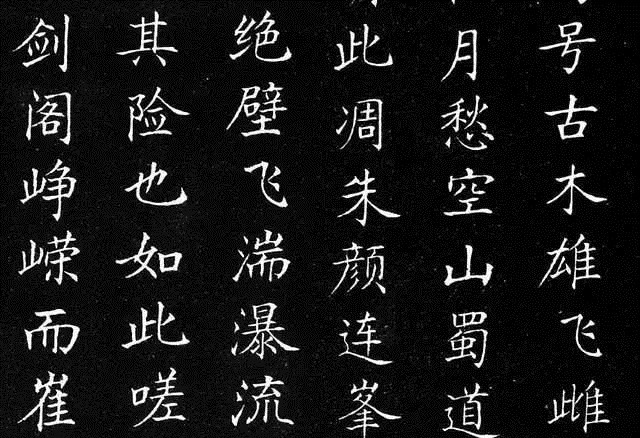 号古木雄飞雌
月愁空山蜀道
此凋朱颜连峯
绝壁飞湍瀑流
其险也如此嗟
剑阁峥嵘而崔